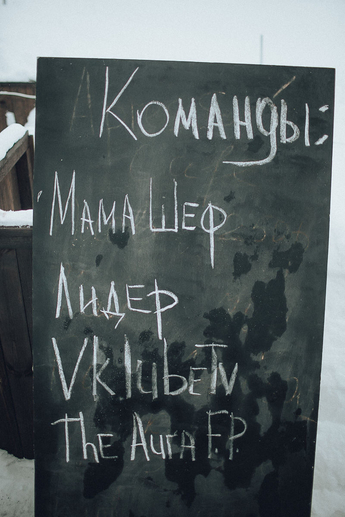 Команды:
Мама Шеф
Лидер
VklubeTv
The Aura F.P.